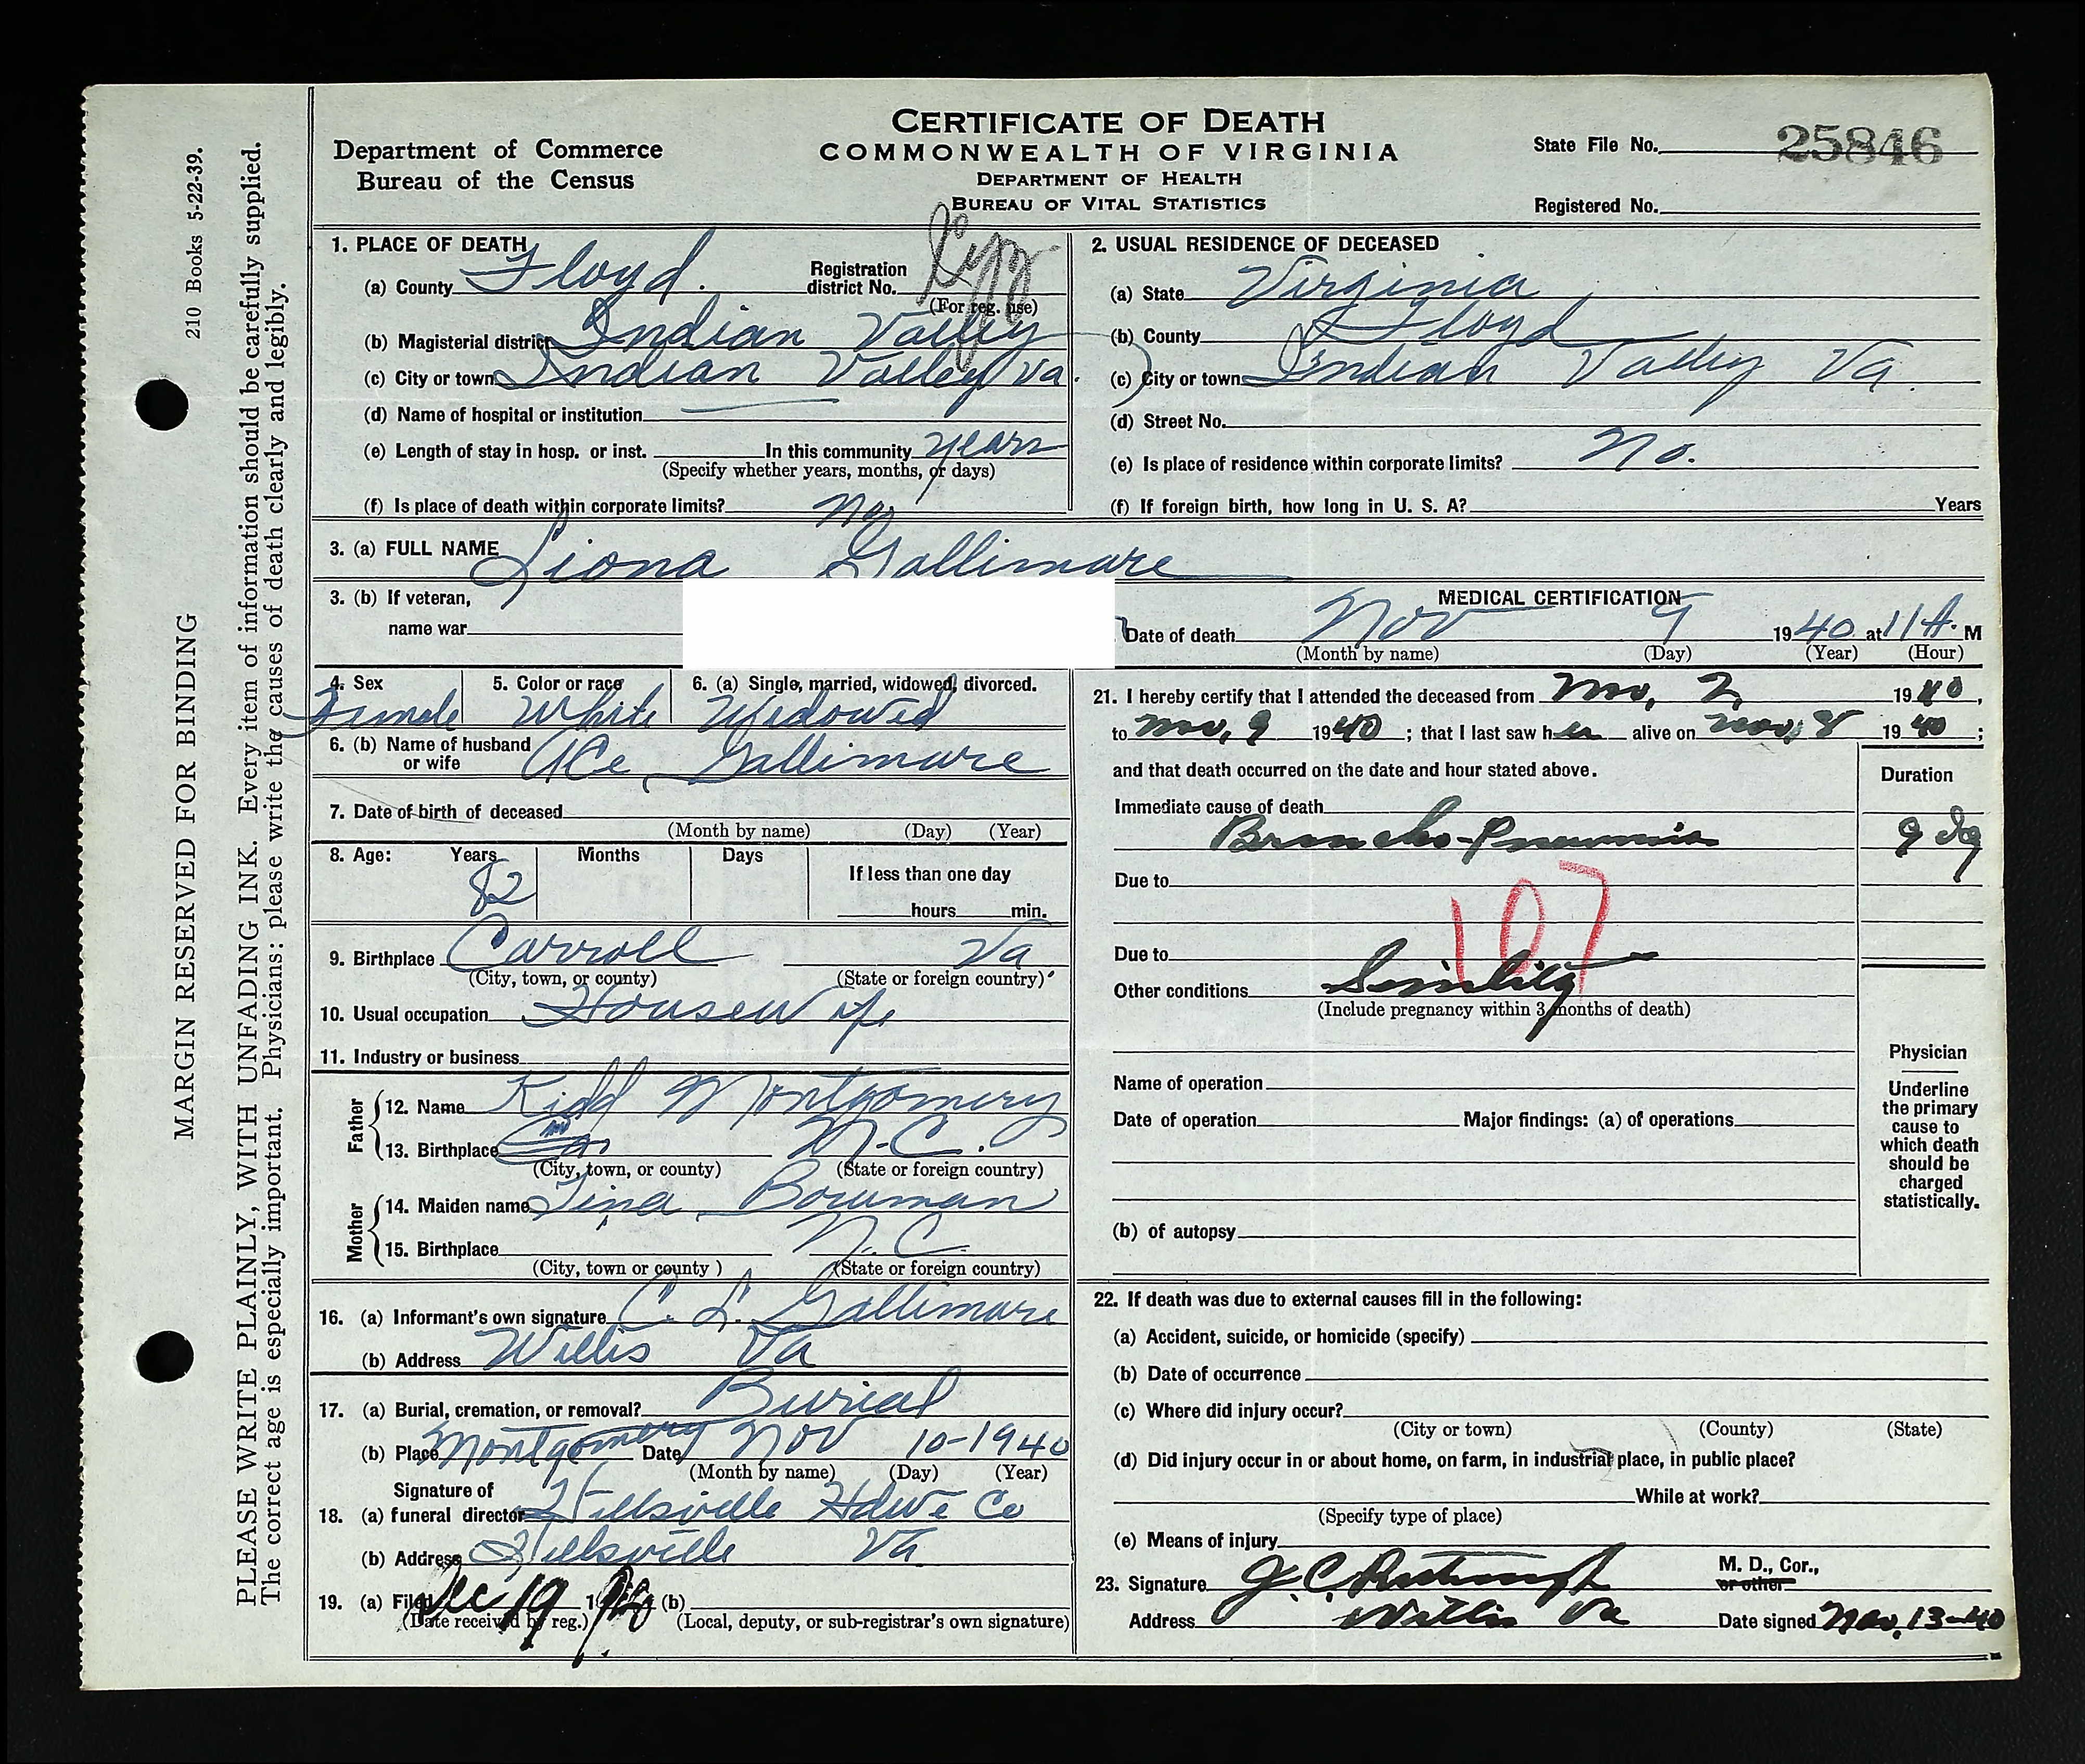 CERTIFICATE OF DEATH
COMMONWEALTH OF VIRGINIA
DEPARTMENT OF HEALTH
BUREAU OF VITAL STATISTICS
Department of Commerce
Bureau of the Census
State File No. 25846
Registered No.
210 Books 5-22-39.
MARGIN RESERVED FOR BINDING
PLEASE WRITE PLAINLY, WITH UNFADING INK. Every item of information should be carefully supplied.
The correct age is especially important. Physicians: please write the causes of death clearly and legibly.
1. PLACE OF DEATH
(a) County Floyd. Registration district No.
(For reg. use)
(b) Magisterial district Indian Valley
(c) City or town Indian Valley Va.
(d) Name of hospital or institution
(e) Length of stay in hosp. or inst. In this community years
(Specify whether years, months, or days)
(f) Is place of death within corporate limits? no
2. USUAL RESIDENCE OF DECEASED
(a) State Virginia
(b) County Floyd
(c) City or town Indian Valley Va.
(d) Street No.
(e) Is place of residence within corporate limits? No.
(f) If foreign birth, how long in U. S. A? Years
3. (a) FULL NAME Liona Gallimare
3. (b) If veteran,
name war
4. Sex 5. Color or race 6. (a) Single, married, widowed, divorced.
Female White Widowed
6. (b) Name of husband or wife Ace Gallimare
7. Date of birth of deceased
(Month by name) (Day) (Year)
8. Age: Years Months Days If less than one day
82 hours min.
9. Birthplace Carroll Va
(City, town, or county) (State or foreign country)
10. Usual occupation Housewife
11. Industry or business
Father
12. Name Kidd Montgomery
13. Birthplace N.C.
(City, town, or county) (State or foreign country)
Mother
14. Maiden name Tina Bowman
15. Birthplace N.C.
(City, town or county) (State or foreign country)
16. (a) Informant's own signature C. L. Gallimare
(b) Address Willis Va
17. (a) Burial, cremation, or removal? Burial
(b) Place Montgomery Date Nov 10-1940
(Month by name) (Day) (Year)
18. (a) Signature of funeral director Hillsville Hdwe Co
(b) Address Hillsville Va
19. (a) Filed Dec 19 1940 (b)
(Date received by reg.) (Local, deputy, or sub-registrar's own signature)
MEDICAL CERTIFICATION
Date of death Nov 9 1940 at 11 A. M
(Month by name) (Day) (Year) (Hour)
21. I hereby certify that I attended the deceased from Nov, 2, 1940,
to Nov, 9 1940; that I last saw her alive on Nov, 8 1940;
and that death occurred on the date and hour stated above.
Duration
Immediate cause of death
Broncho-Pneumonia 9 dy
Due to
107
Due to
Other conditions Senility
(Include pregnancy within 3 months of death)
Name of operation
Date of operation Major findings: (a) of operations
(b) of autopsy
Physician
Underline
the primary
cause to
which death
should be
charged
statistically.
22. If death was due to external causes fill in the following:
(a) Accident, suicide, or homicide (specify)
(b) Date of occurrence
(c) Where did injury occur?
(City or town) (County) (State)
(d) Did injury occur in or about home, on farm, in industrial place, in public place?
While at work?
(Specify type of place)
(e) Means of injury
23. Signature J. C. M. D., Cor., or other
Address Willis Va Date signed Nov, 13-40